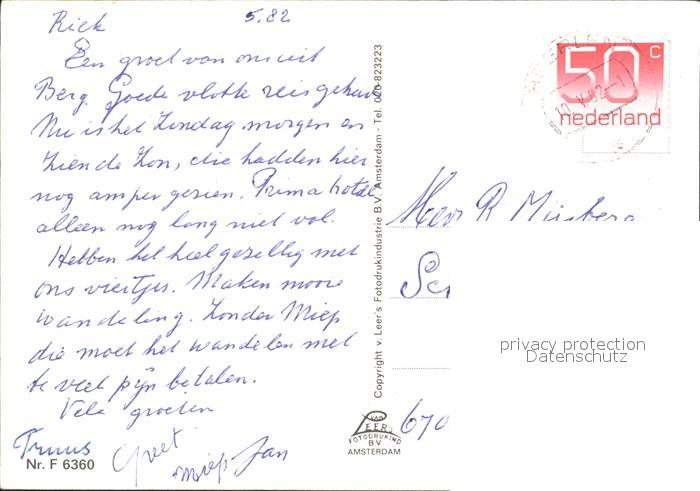 Riek 5.82
Een groet van ons uit
Berg. Goede vlotte reis gehad
Nu is het Zondag morgen en
zien de Zon, die hadden hier
nog amper gezien. Prima hotel
alleen nog lang niet vol.
Hebben het heel gezellig met
ons viertjes. Maken mooie
wandeling. Zonder Miep
die moet het wandelen met
te veel pijn betalen.
Vele groeten
Truus Greet Miep Jan
Nr. F 6360
Copyright v. Leer's Fotodrukindustrie B.V. Amsterdam - Tel. 020-823223
VAN
LEER's
FOTODRUKIND
BV
AMSTERDAM
50 c
nederland
Heer R
670
privacy protection
Datenschutz